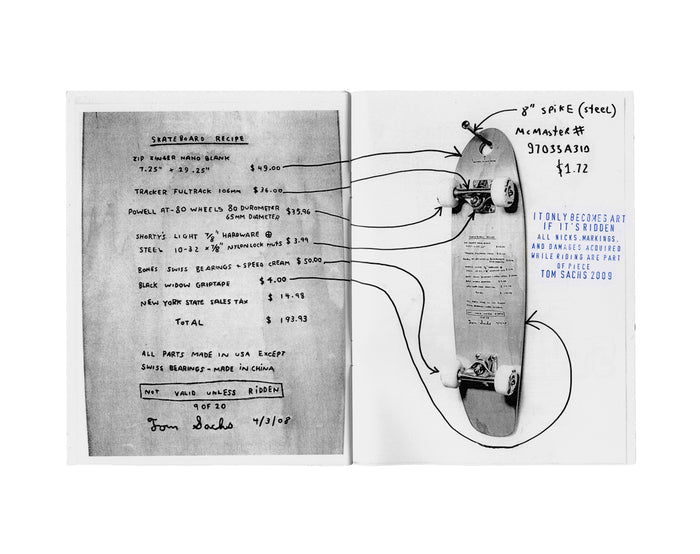 SKATEBOARD RECIPE
ZIP ZINGER NANO BLANK
7.25" × 29.25" $49.00
TRACKER FULTRACK 106mm $36.00
POWELL AT-80 WHEELS 80 DUROMETER
65MM DIAMETER $35.96
SHORTY'S LIGHT 7/8" HARDWARE ⊕
STEEL 10-32 × 7/8" NYLON LOCK NUTS $3.99
BONES SWISS BEARINGS + SPEED CREAM $50.00
BLACK WIDOW GRIPTAPE $4.00
NEW YORK STATE SALES TAX $14.98
TOTAL $193.93
ALL PARTS MADE IN USA EXCEPT
SWISS BEARINGS - MADE IN CHINA
NOT VALID UNLESS RIDDEN
9 OF 20
Tom Sachs 4/3/08
8" SPIKE (STEEL)
McMASTER#
97035A310
$1.72
IT ONLY BECOMES ART
IF IT'S RIDDEN
ALL NICKS, MARKINGS,
AND DAMAGES ACQUIRED
WHILE RIDING ARE PART
OF PIECE
TOM SACHS 2009